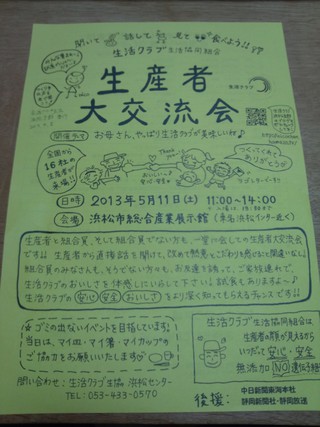 聞いて 話して 見て 食べよう!!
生活クラブ生活協同組合
生産者
大交流会
開催テーマ お母さん、やっぱり生活クラブが美味しいね♪
全国から
16社の
生産者が
来場!!
つくってくれて
ありがとう
日時 2013年5月11日(土) 11:00~14:00
会場 浜松市総合産業展示館(東名浜松インター近く)
生産者と組合員、そして組合員でない方も、一堂に会しての生産者大交流会
です!! 生産者から直接話を聞けて、改めて熱意とこだわりを感じること間違いなし!
組合員のみなさんも、そうでない方々も、お友達を誘って、ご家族連れで、
生活クラブのおいしさを体感しにいらして下さい♪試食もありますよ~♪
生活クラブの安心安全おいしさをより深く知ってもらえるチャンスです!!
☆ゴミの出ないイベントを目指しています!
当日は、マイ皿・マイ箸・マイカップの
ご協力をお願いいたします
生活クラブ生活協同組合は
生産者の顔が見えるから
いつだって安心・安全
無添加 NO遺伝子組
問い合わせ:生活クラブ生協 浜松センター
TEL:053-433-0570
後援:中日新聞東海本社
静岡新聞社・静岡放送